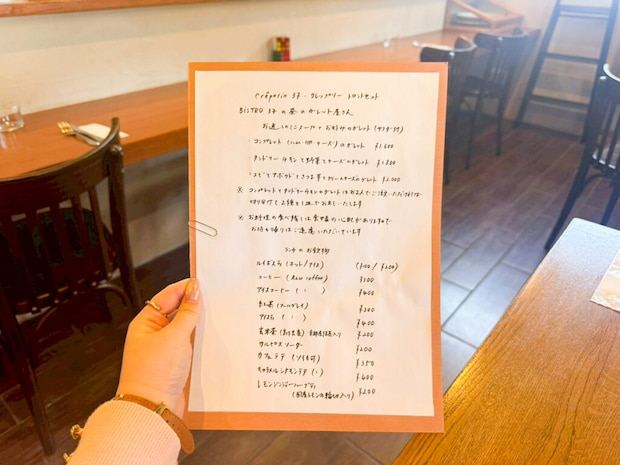 Crêperie 37・クレップリー トロントセット
BISTRO 37 の 昼のガレット屋さん
お通し(ミニスープ + お好みのガレット(サラダ付)
・コンプレット(ハム・卵 チーズ)のガレット ¥1,600
・タンドリーチキンと野菜とチーズのガレット ¥1,800
・エビとアボカドとさつま芋とクリームチーズのガレット ¥2,000
※ コンプレットとタンドリーチキンのガレットはお2人でご注文いただければ
切り分けて2種を1皿でお出しいたします
※ お料理の食べ残しは食中毒の心配がありますので
お持ち帰りはご遠慮いただいています
ランチのお飲物
ルイボスティ(ホット/アイス) (¥100 / ¥200)
コーヒー(Hau coffee) ¥300
アイスコーヒー( 〃 ) ¥400
紅茶(アールグレイ) ¥300
アイスティ( 〃 ) ¥400
玄米茶 ¥200
カルピスソーダー ¥200
カフェラテ(ソイも可) ¥350
キャラメルシナモンラテ(〃) ¥400
レモンジンジャーハーブティ
(国産レモンの輪切り入り) ¥200